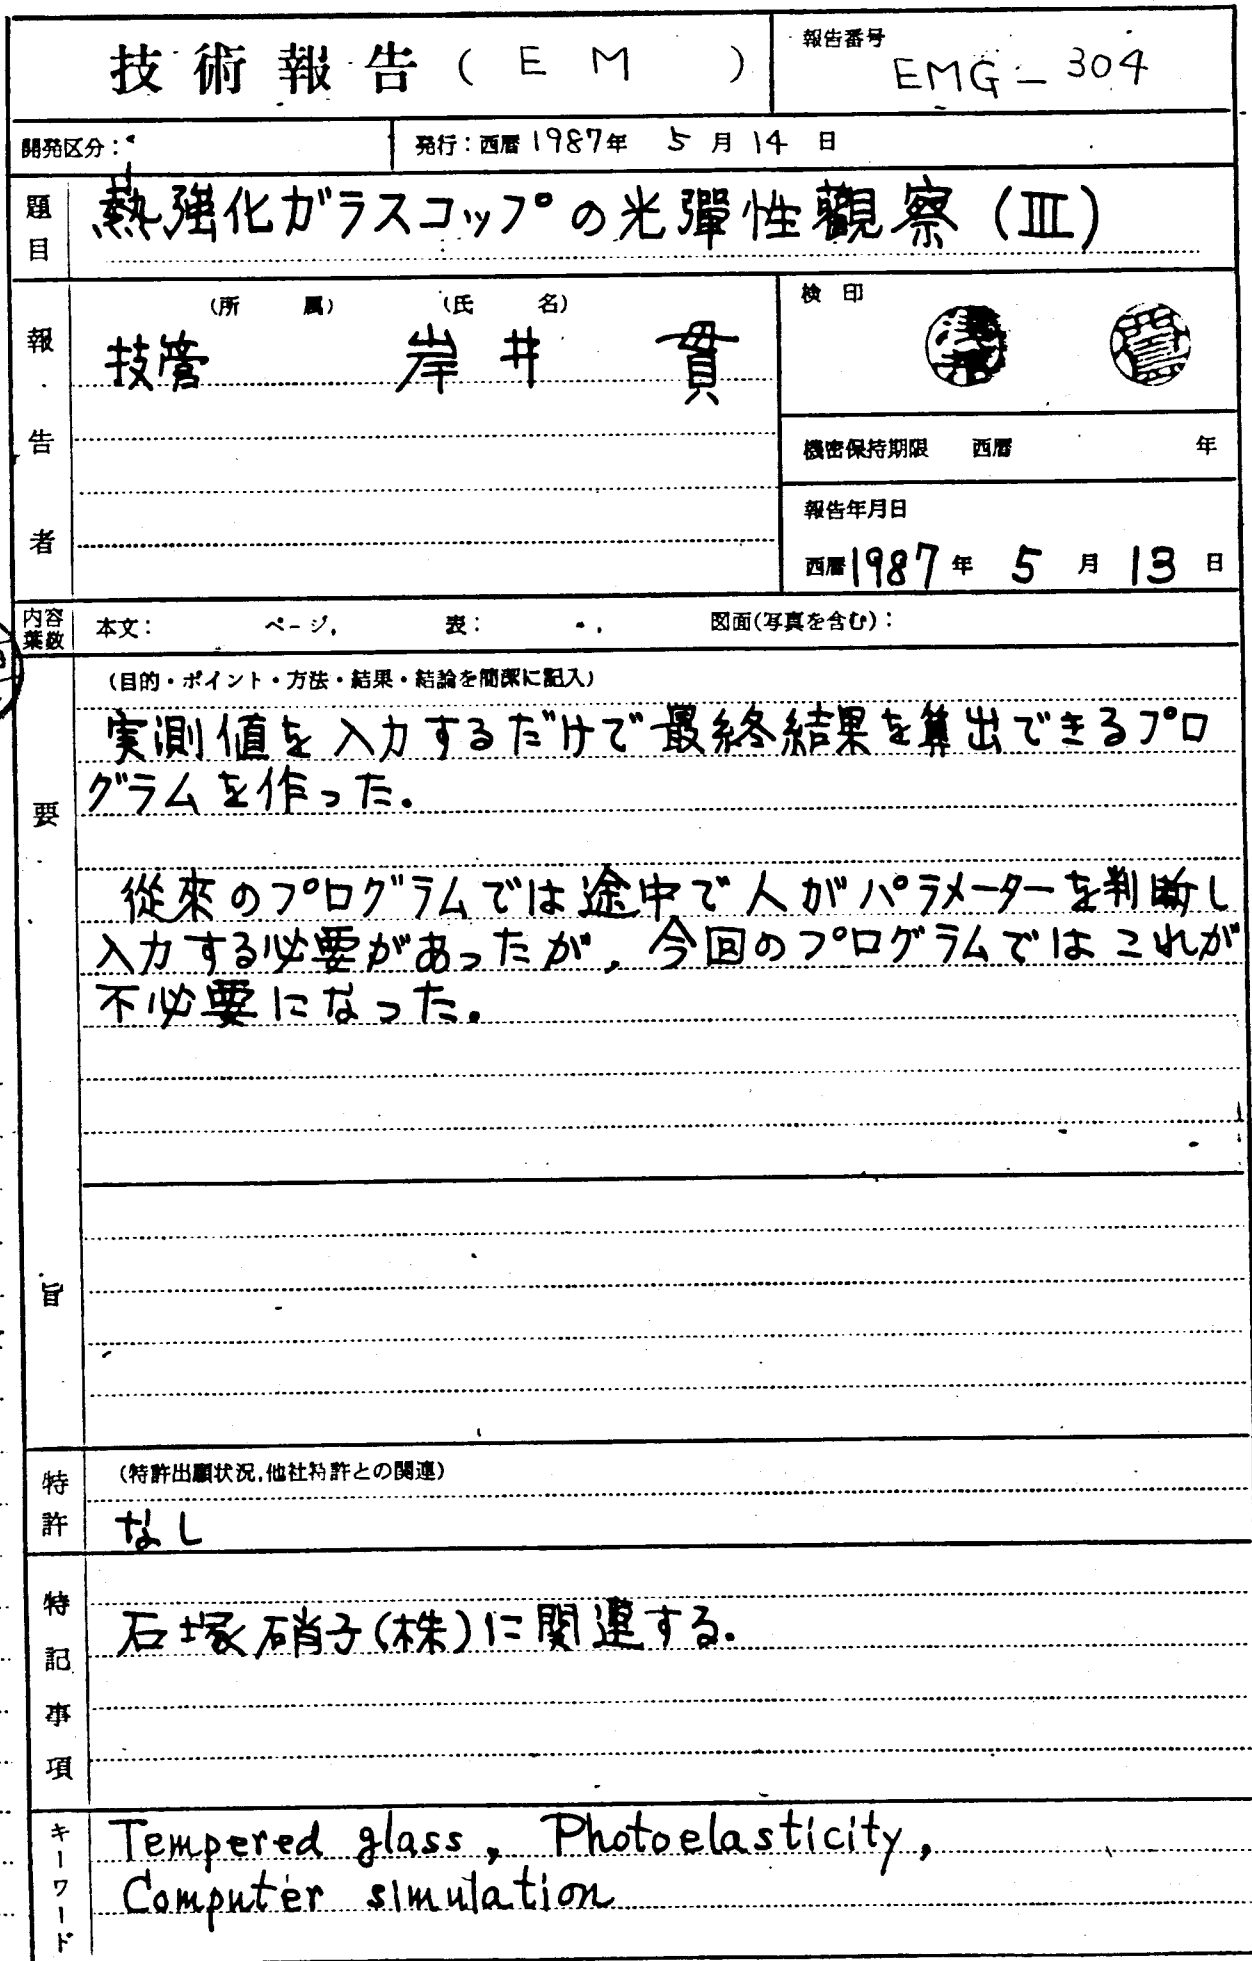 技術報告(EM)
報告番号
EMG-304
開発区分:
発行:西暦1987年 5月14日
題目
熱強化ガラスコップの光彈性觀察(III)
報告者
(所属) (氏名)
技管 岸井 貫
検印
機密保持期限 西暦 年
報告年月日
西暦1987年 5月13日
内容葉数
本文: ページ, 表: , 図面(写真を含む):
要旨
(目的・ポイント・方法・結果・結論を簡潔に記入)
実測値を入力するだけで最終結果を算出できるプロ
グラムを作った.
従来のプログラムでは途中で人がパラメーターを判断し
入力する必要があったが, 今回のプログラムではこれが
不必要になった.
特許
(特許出願状況,他社特許との関連)
なし
特記事項
石塚硝子(株)に関連する.
キーワード
Tempered glass, Photoelasticity,
Computer simulation